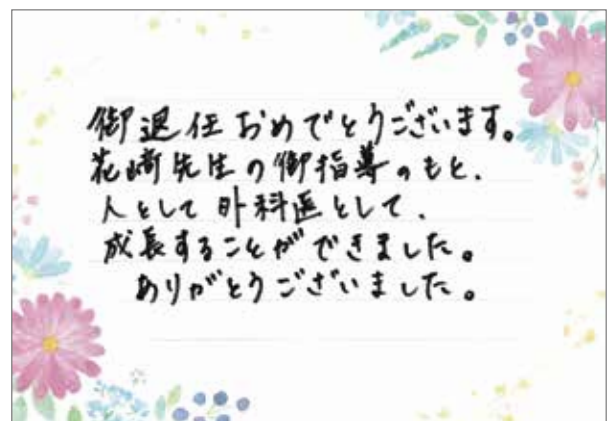 御退任おめでとうございます。
花崎先生の御指導のもと、
人として外科医として、
成長することができました。
ありがとうございました。